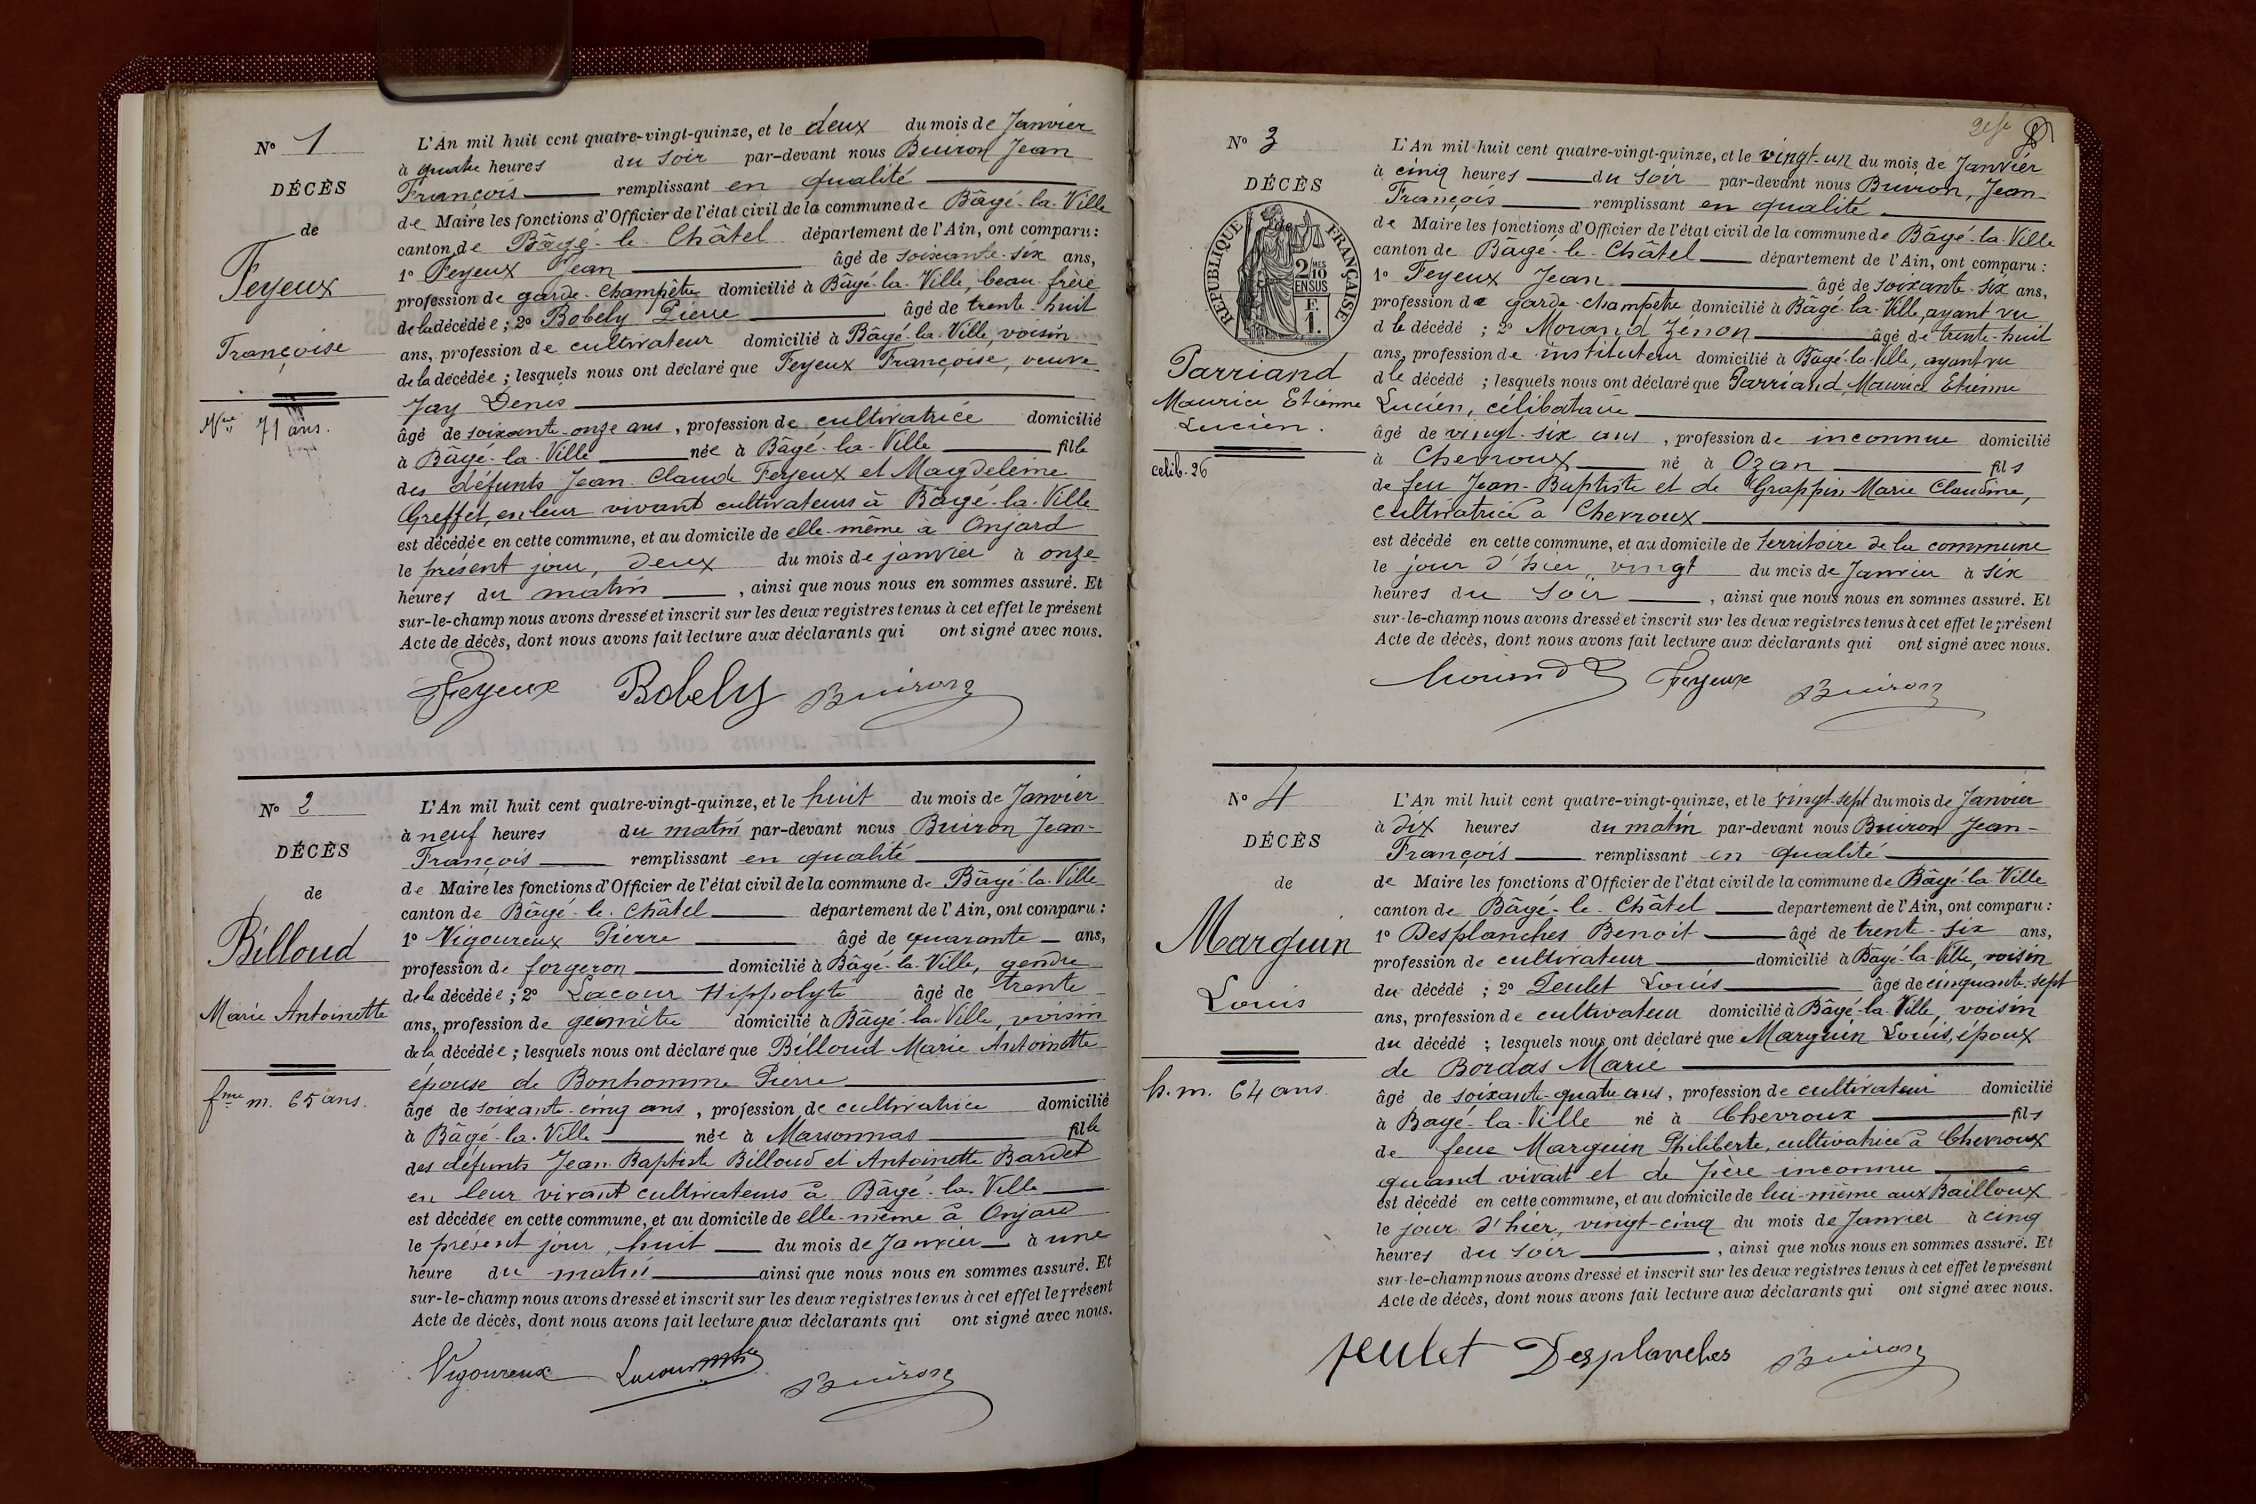 N° 1
DÉCÈS
de
Feyeux
Françoise
Vve 71 ans.
L'An mil huit cent quatre-vingt-quinze, et le deux du mois de Janvier
à quatre heures du soir par-devant nous Buiron Jean
François remplissant en qualité
de Maire les fonctions d'Officier de l'état civil de la commune de Bâgé-la-Ville
canton de Bâgé-le-Châtel département de l'Ain, ont comparu :
1° Feyeux Jean âgé de soixante-six ans,
profession de garde-champêtre domicilié à Bâgé-la-Ville, beau-frère
de la décédée ; 2° Bobely Pierre âgé de trente-huit
ans, profession de cultivateur domicilié à Bâgé-la-Ville, voisin
de la décédée ; lesquels nous ont déclaré que Feyeux Françoise, veuve
Jay Denis
âgé de soixante-onze ans, profession de cultivatrice domicilié
à Bâgé-la-Ville née à Bâgé-la-Ville fille
des défunts Jean-Claude Feyeux et Magdeleine
Greffet, en leur vivant cultivateurs à Bâgé-la-Ville
est décédée en cette commune, et au domicile de elle-même à Onjard
le présent jour, deux du mois de janvier à onze
heures du matin, ainsi que nous nous en sommes assuré. Et
sur-le-champ nous avons dressé et inscrit sur les deux registres tenus à cet effet le présent
Acte de décès, dont nous avons fait lecture aux déclarants qui ont signé avec nous.
Feyeux Bobely Buiron
N° 2
DÉCÈS
de
Billoud
Marie Antoinette
fme m. 65 ans.
L'An mil huit cent quatre-vingt-quinze, et le huit du mois de Janvier
à neuf heures du matin par-devant nous Buiron Jean-
François remplissant en qualité
de Maire les fonctions d'Officier de l'état civil de la commune de Bâgé-la-Ville
canton de Bâgé-le-Châtel département de l'Ain, ont comparu :
1° Vigoureux Pierre âgé de quarante ans,
profession de forgeron domicilié à Bâgé-la-Ville, gendre
de la décédée ; 2° Lacour Hippolyte âgé de trente
ans, profession de géomètre domicilié à Bâgé-la-Ville, voisin
de la décédée ; lesquels nous ont déclaré que Billoud Marie Antoinette
épouse de Bonhomme Pierre
âgé de soixante-cinq ans, profession de cultivatrice domicilié
à Bâgé-la-Ville née à Marsonnas fille
des défunts Jean Baptiste Billoud et Antoinette Bardet
en leur vivant cultivateurs à Bâgé-la-Ville
est décédée en cette commune, et au domicile de elle-même à Onjard
le présent jour, huit du mois de Janvier à une
heure du matin ainsi que nous nous en sommes assuré. Et
sur-le-champ nous avons dressé et inscrit sur les deux registres tenus à cet effet le présent
Acte de décès, dont nous avons fait lecture aux déclarants qui ont signé avec nous.
Vigoureux Lacour Buiron
N° 3
DÉCÈS
de
RÉPUBLIQUE FRANÇAISE
2 MES
10
EN SUS
F.
1.
Parriand
Maurice Etienne
Lucien.
celib. 26
L'An mil huit cent quatre-vingt-quinze, et le vingt-un du mois de Janvier
à cinq heures du soir par-devant nous Buiron, Jean-
François remplissant en qualité
de Maire les fonctions d'Officier de l'état civil de la commune de Bâgé-la-Ville
canton de Bâgé-le-Châtel département de l'Ain, ont comparu :
1° Feyeux Jean âgé de soixante-six ans,
profession de garde-champêtre domicilié à Bâgé-la-Ville, ayant vu
d le décédé ; 2° Morand Zénon âgé de trente-huit
ans, profession de instituteur domicilié à Bâgé-la-Ville, ayant vu
d le décédé ; lesquels nous ont déclaré que Parriand, Maurice Etienne
Lucien, célibataire
âgé de vingt-six ans, profession de inconnue domicilié
à Chevroux né à Ozan fils
de feu Jean-Baptiste et de Grappin Marie Claudine,
cultivatrice à Chevroux
est décédé en cette commune, et au domicile de territoire de la commune
le jour d'hier, vingt du mois de Janvier à six
heures du soir, ainsi que nous nous en sommes assuré. Et
sur-le-champ nous avons dressé et inscrit sur les deux registres tenus à cet effet le présent
Acte de décès, dont nous avons fait lecture aux déclarants qui ont signé avec nous.
Morand Feyeux Buiron
N° 4
DÉCÈS
de
Marguin
Louis
h. m. 64 ans
L'An mil huit cent quatre-vingt-quinze, et le vingt-sept du mois de Janvier
à dix heures du matin par-devant nous Buiron Jean-
François remplissant en qualité
de Maire les fonctions d'Officier de l'état civil de la commune de Bâgé-la-Ville
canton de Bâgé-le-Châtel département de l'Ain, ont comparu :
1° Desplanches Benoit âgé de trente-six ans,
profession de cultivateur domicilié à Bâgé-la-Ville, voisin
du décédé ; 2° Peulet Louis âgé de cinquante-sept
ans, profession de cultivateur domicilié à Bâgé-la-Ville, voisin
du décédé ; lesquels nous ont déclaré que Marguin Louis, époux
de Bordas Marie
âgé de soixante-quatre ans, profession de cultivateur domicilié
à Bagé-la-Ville né à Chevroux fils
de feue Marguin Philiberte, cultivatrice à Chevroux
quand vivait et de père inconnu
est décédé en cette commune, et au domicile de lui-même aux Bailloux
le jour d'hier, vingt-cinq du mois de Janvier à cinq
heures du soir, ainsi que nous nous en sommes assuré. Et
sur-le-champ nous avons dressé et inscrit sur les deux registres tenus à cet effet le présent
Acte de décès, dont nous avons fait lecture aux déclarants qui ont signé avec nous.
peulet Desplanches Buiron